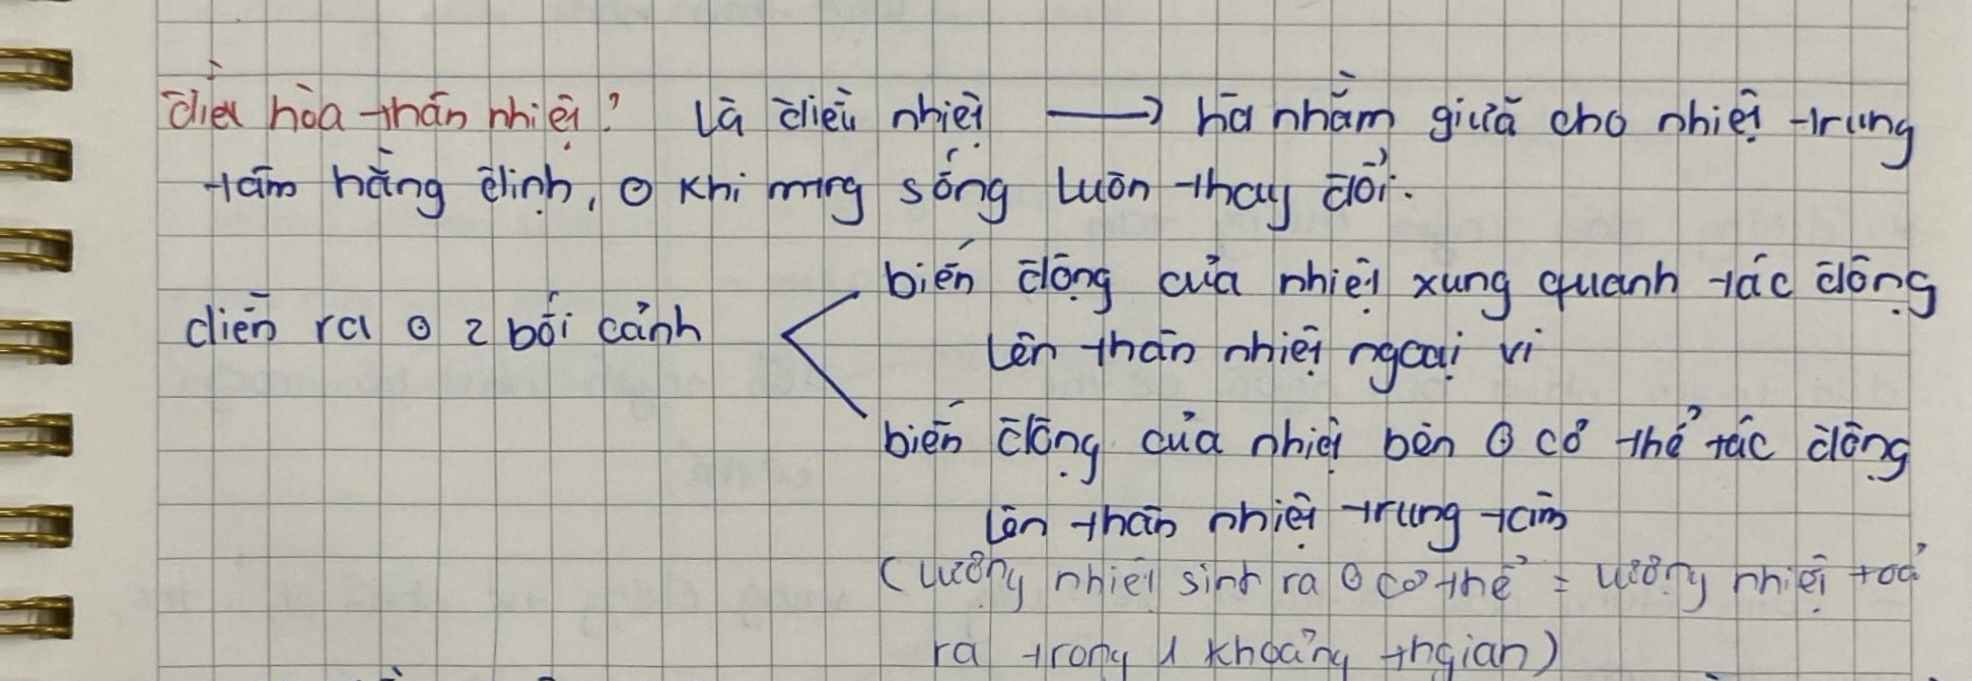 điều hòa thân nhiệt? Là điều nhiệt ⟶ hđ nhằm giữ cho nhiệt trung
tâm hằng định, ⊙ khi mtrg sống luôn thay đổi.
diễn ra ⊙ 2 bối cảnh
biến động của nhiệt xung quanh tác động
lên thân nhiệt ngoại vi
biến động của nhiệt bên ⊙ cơ thể tác động
lên thân nhiệt trung tâm
(lượng nhiệt sinh ra ⊙ cơ thể = lượng nhiệt toả
ra trong 1 khoảng thgian)